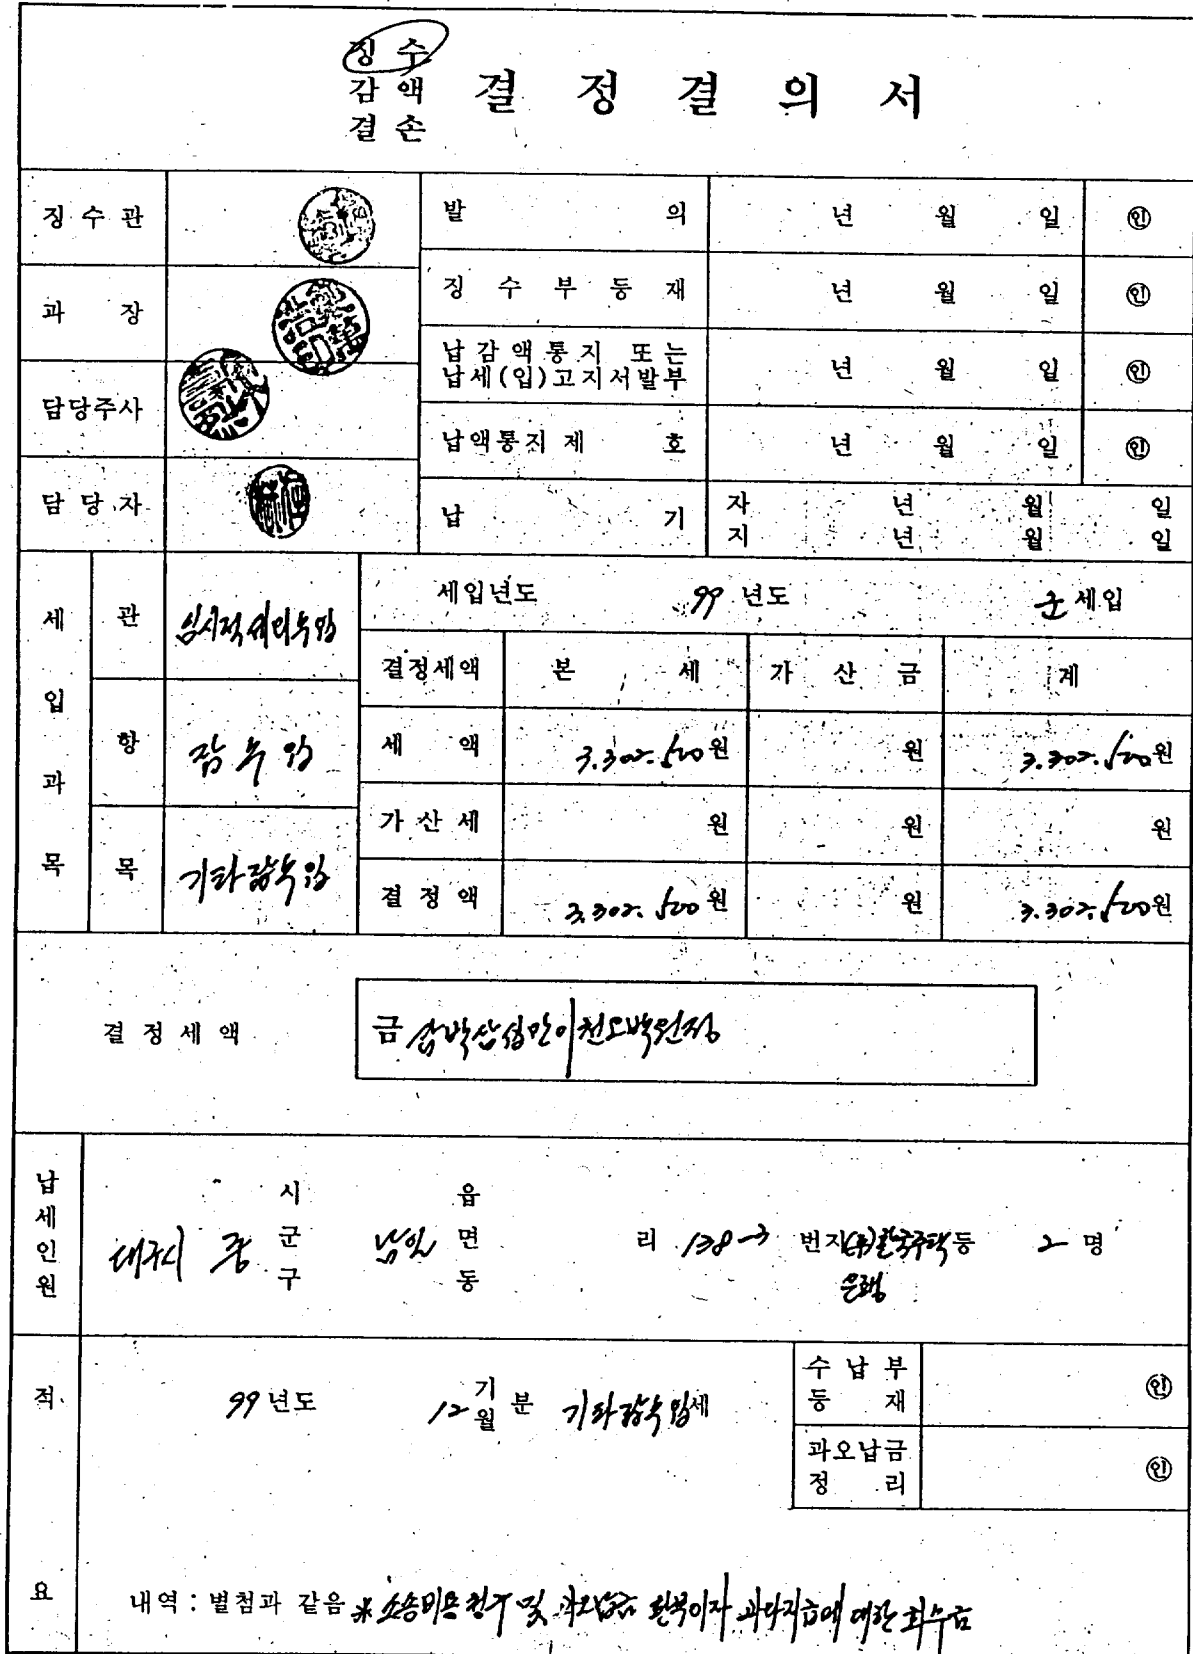 징수
감액
결손
결정결의서
징수관
발의 년 월 일 ㊞
과장
징수부등재 년 월 일 ㊞
납감액통지 또는
납세(입)고지서발부 년 월 일 ㊞
담당주사
납액통지제 호 년 월 일 ㊞
담당자
납기 자 년 월 일
지 년 월 일
세입과목
관 임시적세외수입
항 잡수입
목 기타잡수입
세입년도 99년도 군세입
결정세액 본세 가산금 계
세액 3.302.500원 원 3.302.500원
가산세 원 원 원
결정액 3.302.500원 원 3.302.500원
결정세액 금
납세인원
대구시 중 시군구 남일 읍면동 리 138-3 번지 (주)한국주택 등 2명
은행
적요
99년도 12 기월분 기타잡수입세
수납부
등재 ㊞
과오납금
정리 ㊞
내역 : 별첨과 같음 ※ 소송비용청구 및 과오납금 환부이자 과다지급에 대한 회수금